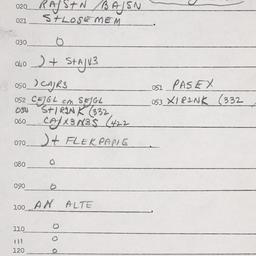 020 RAJS+N / BAJSN
021 S+LOSEMEM
030 0
040 ) + S+AJV3
050 ) CAJRS 051 PASEX
052 CEJGL CA SEJGL 053 XIP1NK (332
054 S+IRINK (332
060 CAJX3N3S (422
070 )+ FLEKPANIG
080 0
090 0
100 AM ALTE
110 0
111 0
120 0